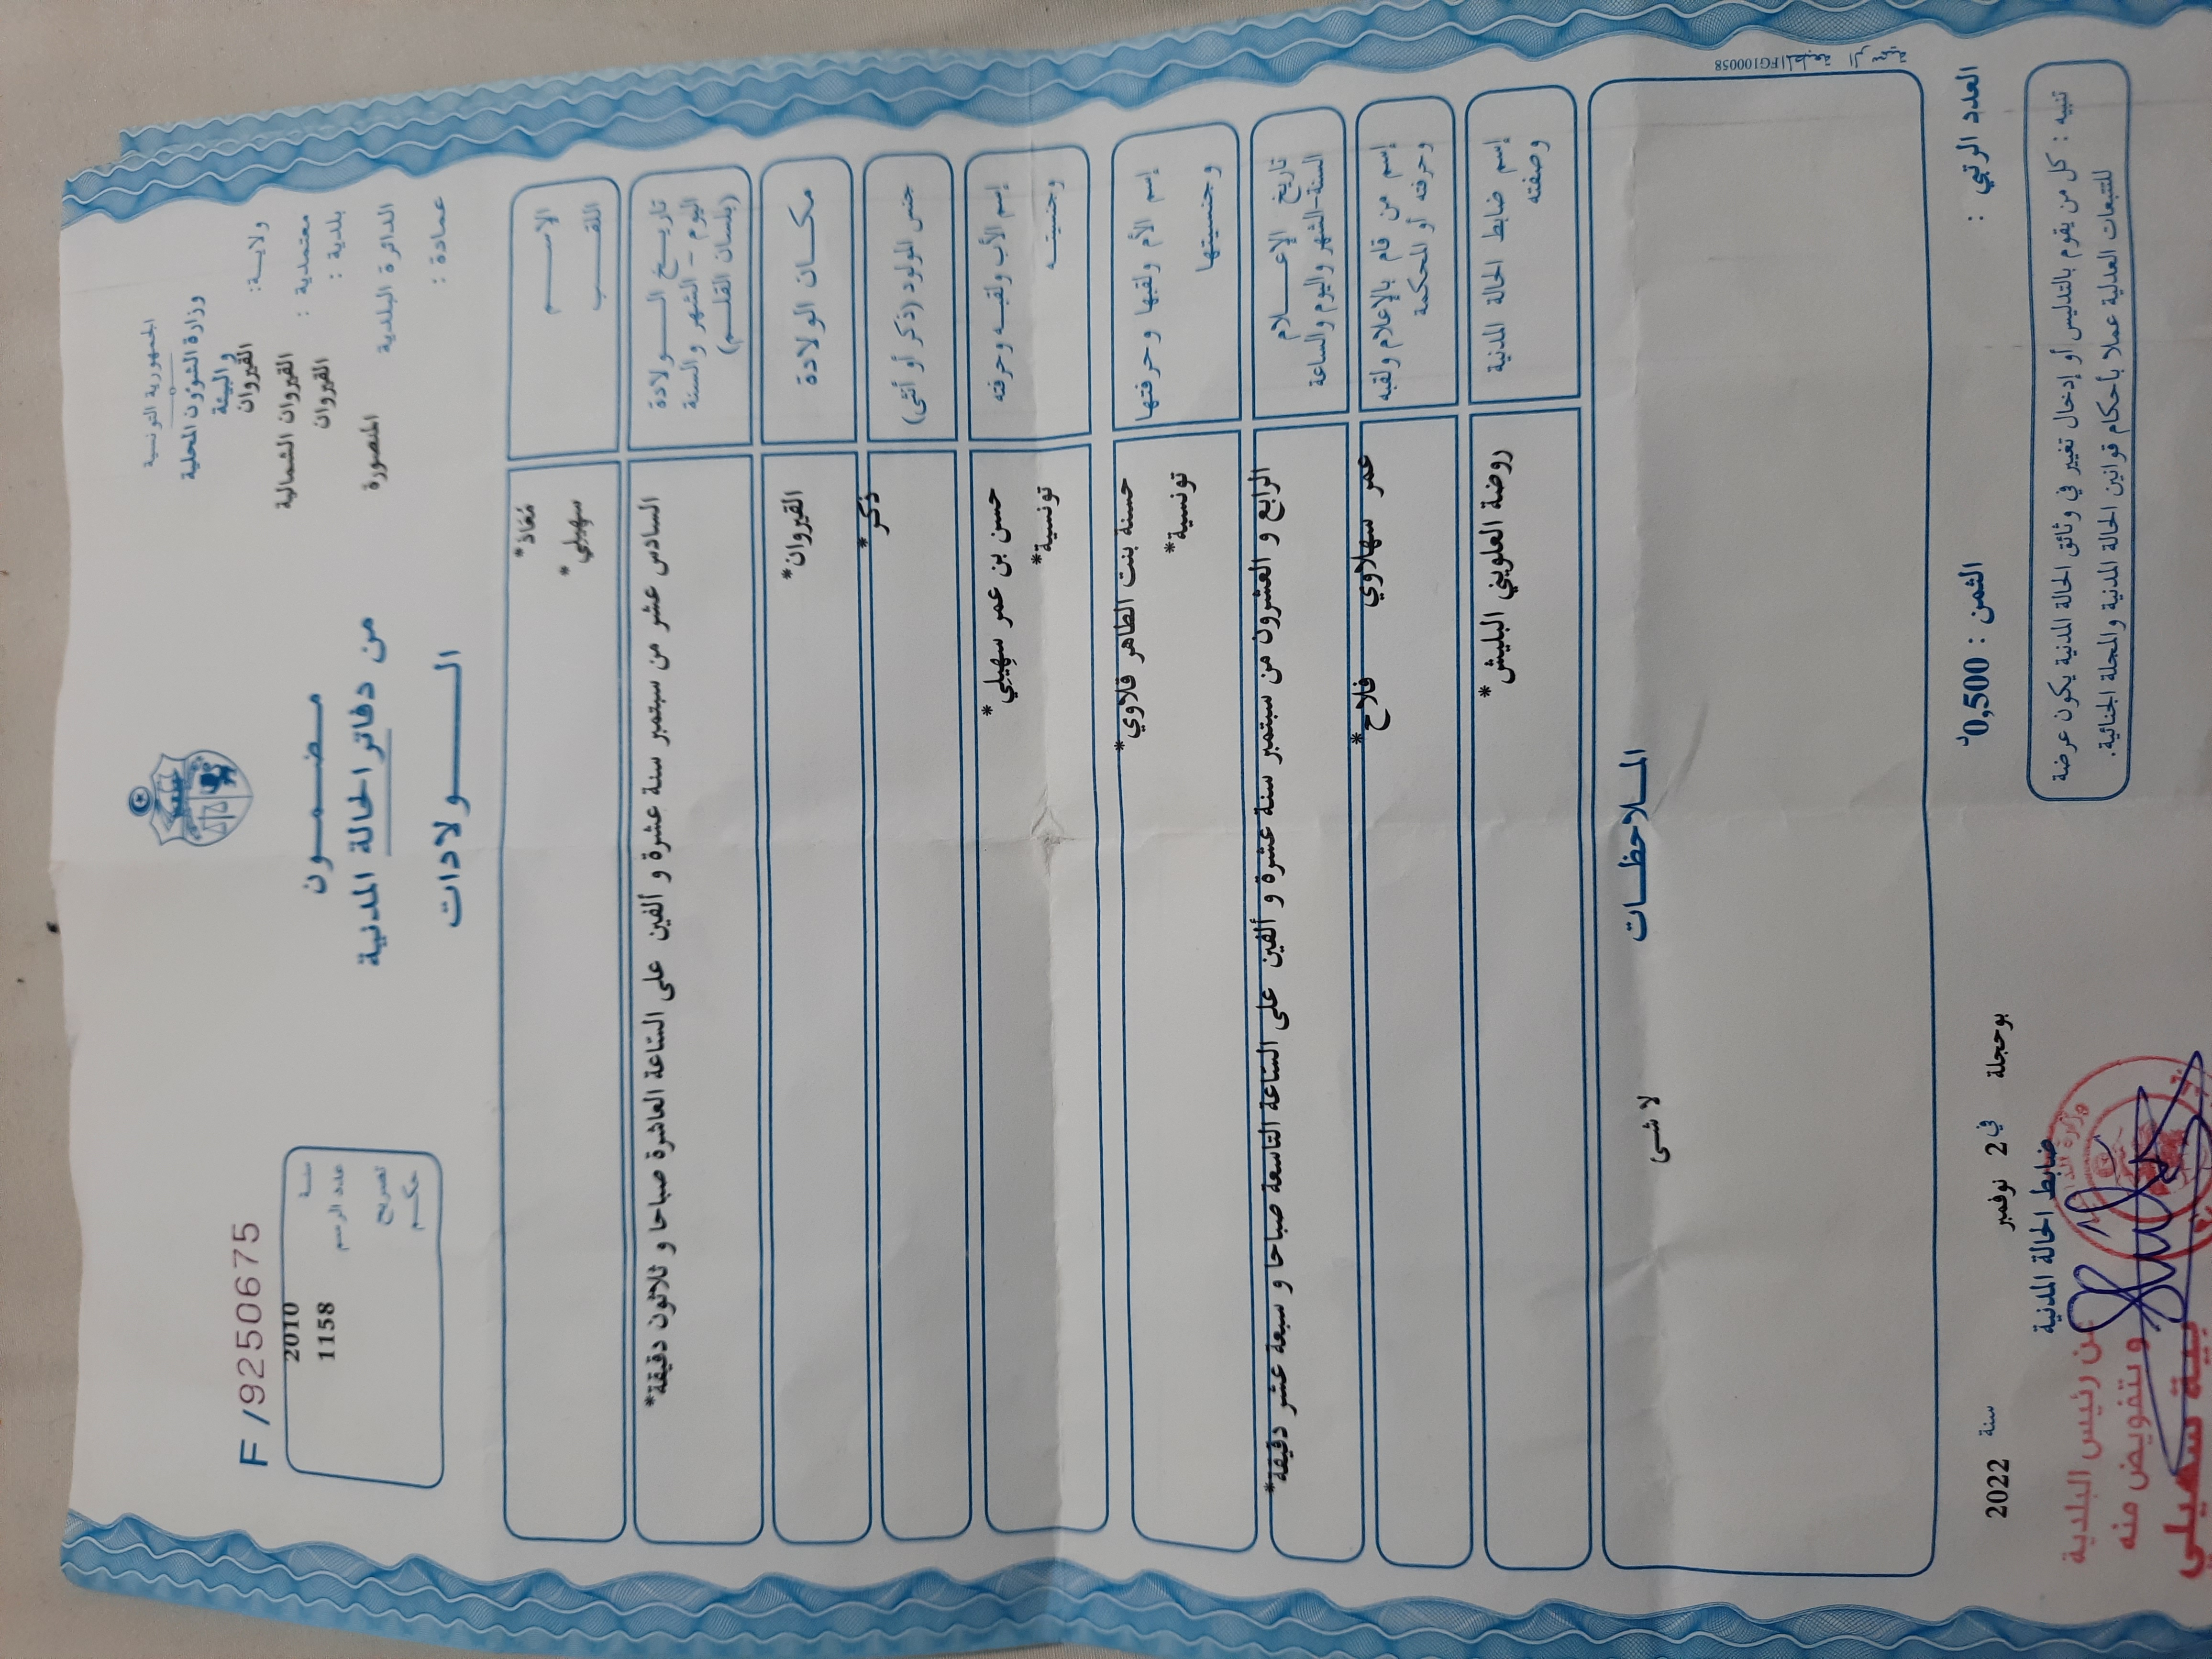 الجمهورية التونسية
وزارة الشؤون المحلية
و البيئة
ولايـــة: القيروان
معتمدية : القيروان الشمالية
بلدية : القيروان
الدائرة البلدية المنصورة
عمادة :
مـضـمـــون
من دفاتر الحالة المدنية
الـــولادات
F /9250675
سنة 2010
عدد الرسم 1158
تصريح
حكـم
الإســـم
اللقـــب
مُعَاذ*
سهيلي*
تاريـــخ الـــــولادة
اليوم - الشهر والسنة
(بلسان القلـــم)
السادس عشر من سبتمبر سنة عشرة و ألفين على الساعة العاشرة صباحا و ثلاثون دقيقة*
مكـــان الولادة
القيروان*
جنس المولود (ذكر أو أنثى)
ذكر*
إسم الأب ولقبـه وحرفته
وجنسيتــه
حسن بن عمر سهيلي*
تونسية*
إسم الأم ولقبها وحرفتها
وجنسيتها
حسنة بنت الطاهر قلاوي*
تونسية*
تاريخ الإعـــــلام
السنة-الشهر واليوم والساعة
الرابع و العشرون من سبتمبر سنة عشرة و ألفين على الساعة التاسعة صباحا و سبعة عشر دقيقة*
إسم من قام بالإعلام ولقبه
وحرفته أو المحكمة
عمر سهلاوي فلاح*
إسم ضابط الحالة المدنية
وصفته
روضة العلويني البليش*
المـــلاحظـــات
لا شئ
FG100058
العدد الرتبي :
الثمن : 0,500د
بوحجلة في 2 نوفمبر سنة 2022
ضابط الحالة المدنية
تنبيه : كل من يقوم بالتدليس أو إدخال تغيير في وثائق الحالة المدنية يكون عرضة
للتتبعات العدلية عملا بأحكام قوانين الحالة المدنية والمجلة الجنائية.
عن رئيس البلدية
و بتفويض منه
سهيلي